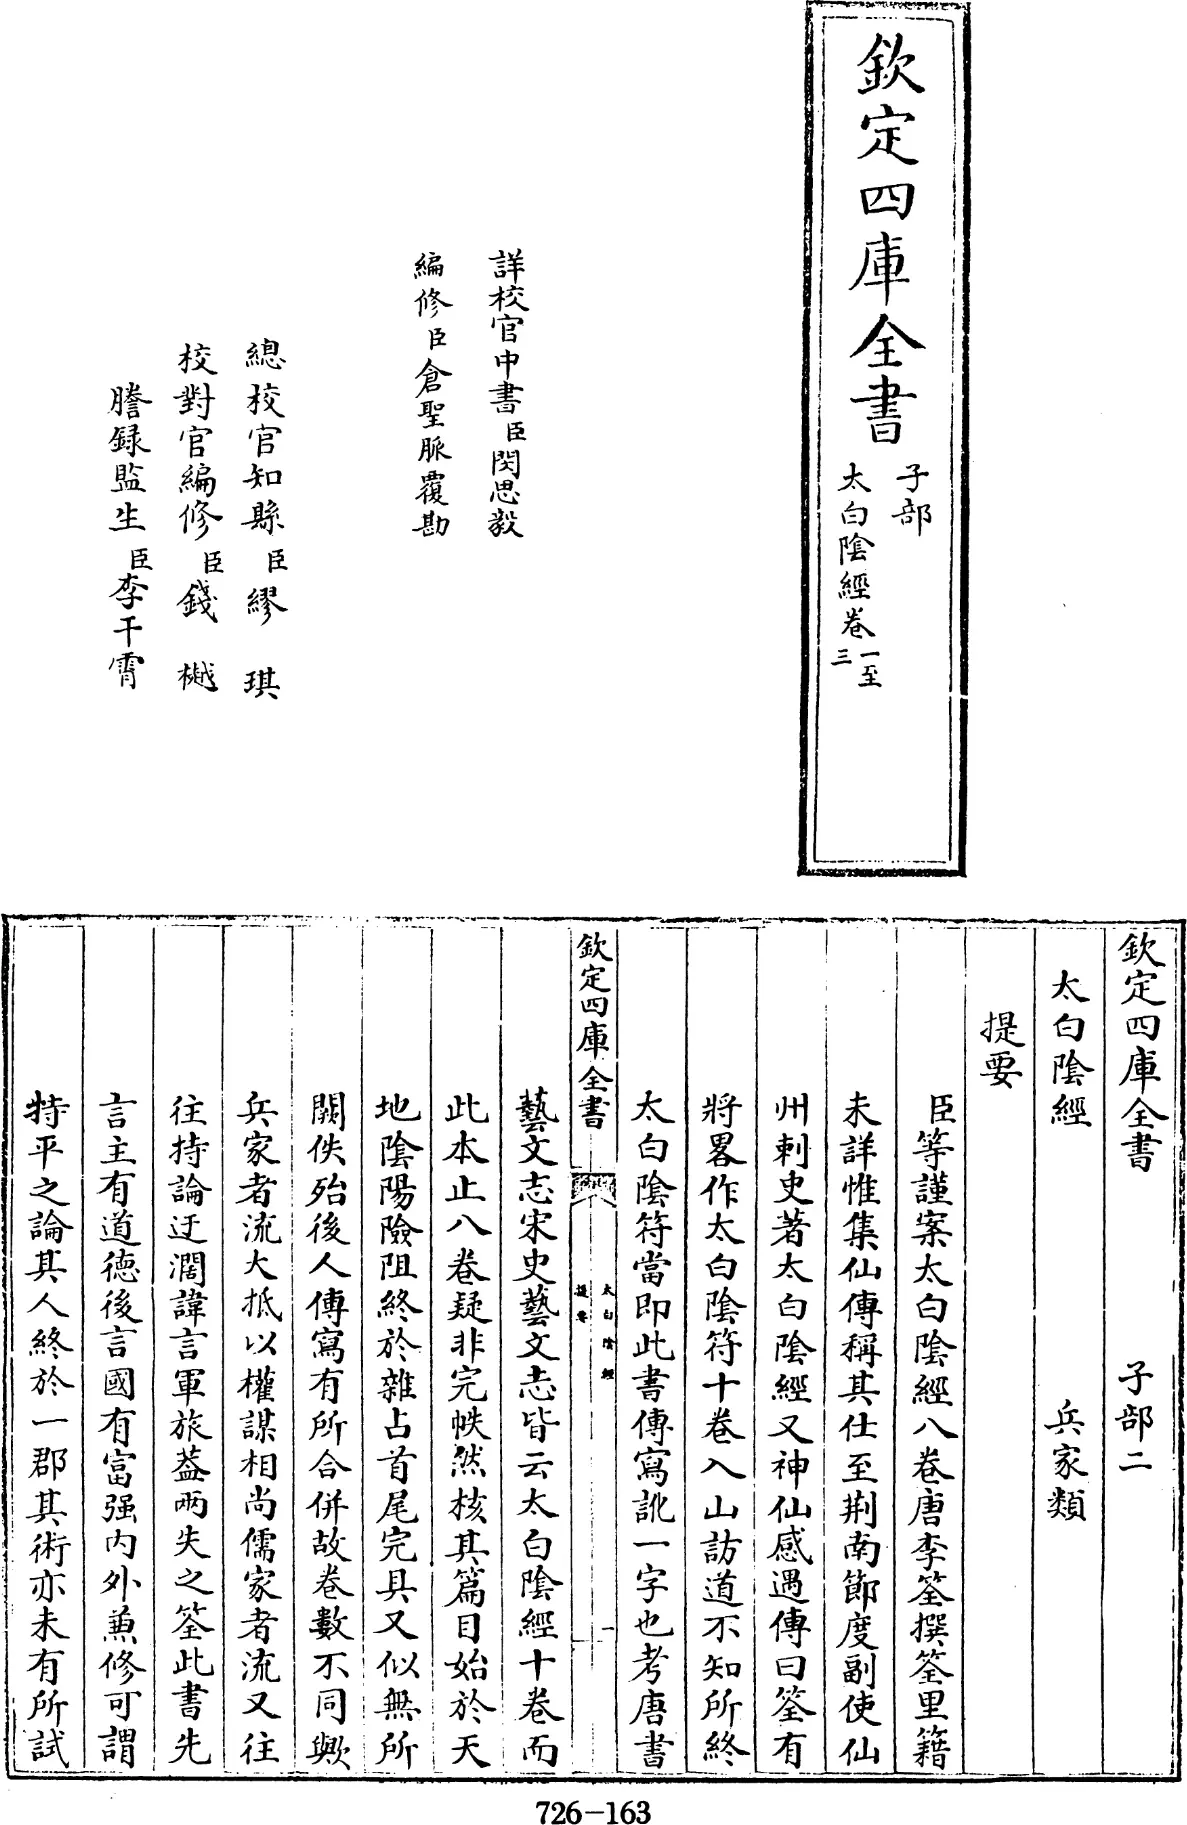 欽定四庫全書
子部
太白陰經卷一至三
詳校官中書臣閔思毅
編修臣倉聖脈覆勘
總校官知縣臣繆琪
校對官編修臣錢樾
謄録監生臣李干霄
欽定四庫全書 子部二
太白陰經 兵家類
提要
臣等謹案太白陰經八卷唐李筌撰筌里籍
未詳惟集仙傳稱其仕至荆南節度副使仙
州刺史著太白陰經又神仙感遇傳曰筌有
將畧作太白陰符十卷入山訪道不知所終
太白陰符當即此書傳寫訛一字也考唐書
欽定四庫全書 太白陰經 提要 一
藝文志宋史藝文志皆云太白陰經十卷而
此本止八卷疑非完帙然核其篇目始於天
地陰陽險阻終於雜占首尾完具又似無所
闕佚殆後人傳寫有所合併故卷數不同歟
兵家者流大抵以權謀相尚儒家者流又往
往持論迂濶諱言軍旅葢兩失之筌此書先
言主有道德後言國有富强内外兼修可謂
特平之論其人終於一郡其術亦未有所試
726-163